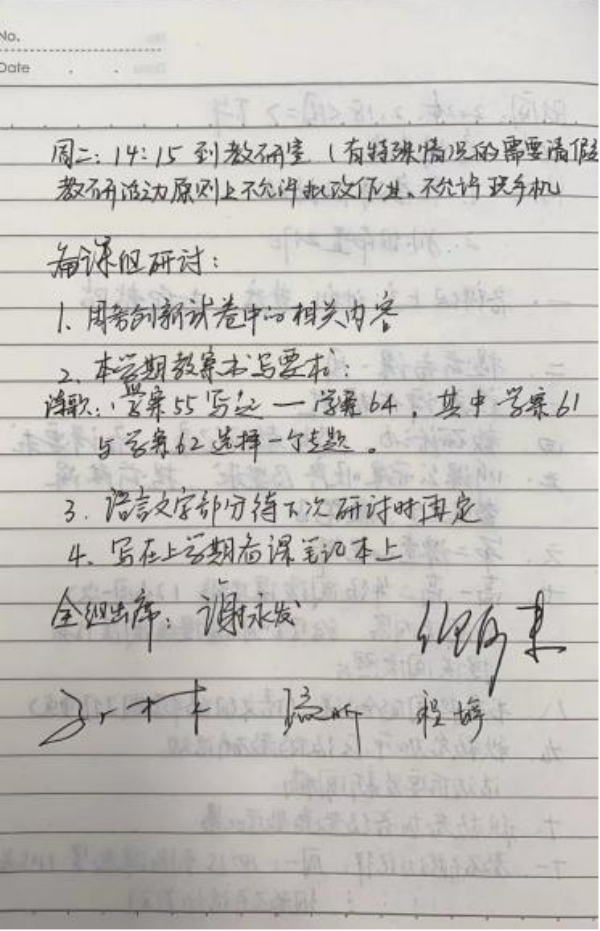 No.
Date
周二：14：15到教研室（有特殊情况的需要请假
教研活动原则上不允许批改作业、不允许玩手机
备课组研讨：
1. 周考创新试卷中的相关内容
2. 本学期教案书写要求：
诗歌：学案55写起——学案64，其中学案61
与学案62选择一个专题。
3. 语言文字部分待下次研讨时再定
4. 写在上学期备课笔记本上
全组出席：谢永发
程婷